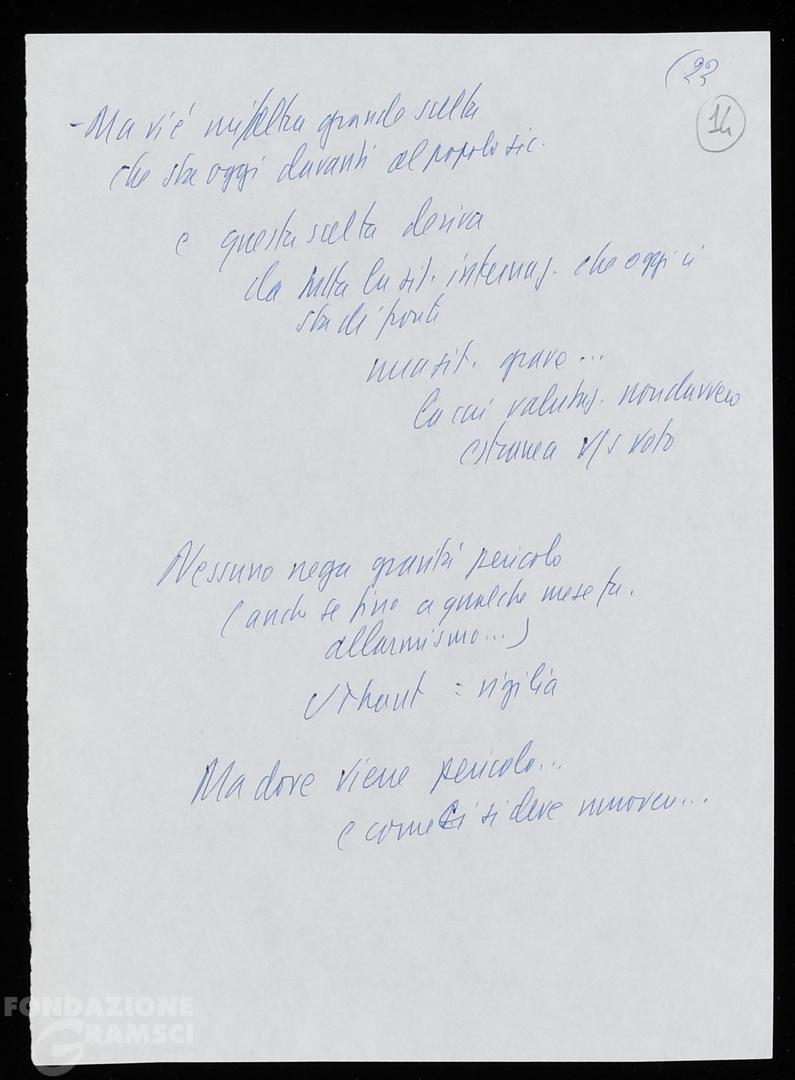 (22
14
- Ma vi è un'altra grande scelta
che sta oggi davanti al popolo sic.
e questa scelta deriva
da tutta la sit. internaz. che oggi ci
sta di fronte
una sit. grave ...
la cui valutaz. non davvero
estranea v/s voto
Nessuno nega gravità pericolo
(anche se fino a qualche mese fa.
allarmismo...)
U Thant = vigilia
Ma dove viene pericolo...
e come ci si deve muovere...
FONDAZIONE
GRAMSCI